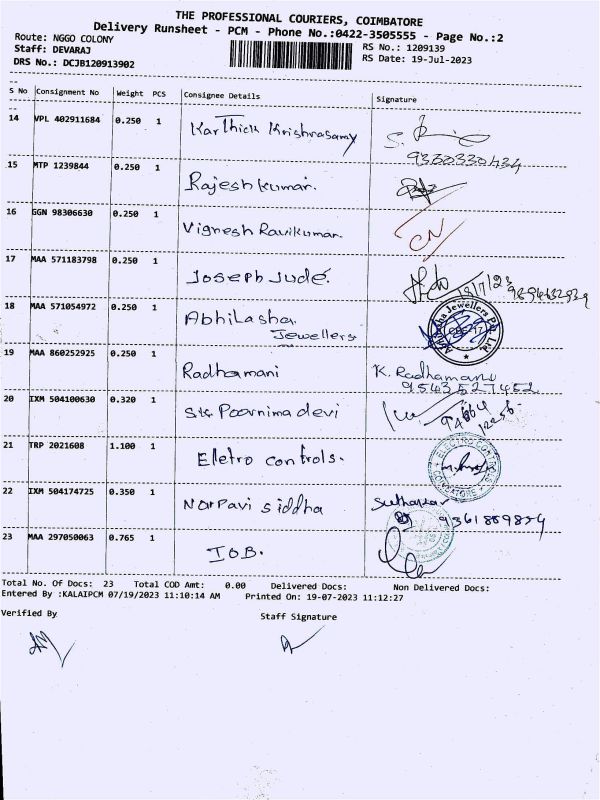 THE PROFESSIONAL COURIERS, COIMBATORE
Delivery Runsheet - PCM - Phone No.:0422-3505555 - Page No.:2
Route: NGGO COLONY
RS No.: 1209139
Staff: DEVARAJ
RS Date: 19-Jul-2023
DRS No.: DCJB120913902
S No Consignment No Weight PCS Consignee Details Signature
14 VPL 402911684 0.250 1 Karthick Krishnasamy S.
15 MTP 1239844 0.250 1 Rajesh kumar.
16 GGN 98306630 0.250 1 Vignesh Ravikumar. CN
17 MAA 571183798 0.250 1 Joseph Jude. 19/7/23
18 MAA 571054972 0.250 1 Abhilasha
Jewellers
19 MAA 860252925 0.250 1 Radhamani K. Radhamani
9543527452
20 IXM 504100630 0.320 1 Poornima devi
21 TRP 2021608 1.100 1 Eletro controls. ELECTRO CONTROLS COIMBATORE
22 IXM 504174725 0.350 1 Norpavi siddha Suthakar
23 MAA 297050063 0.765 1 IOB.
Total No. Of Docs: 23 Total COD Amt: 0.00 Delivered Docs: Non Delivered Docs:
Entered By :KALAIPCM 07/19/2023 11:10:14 AM Printed On: 19-07-2023 11:12:27
Verified By
Staff Signature